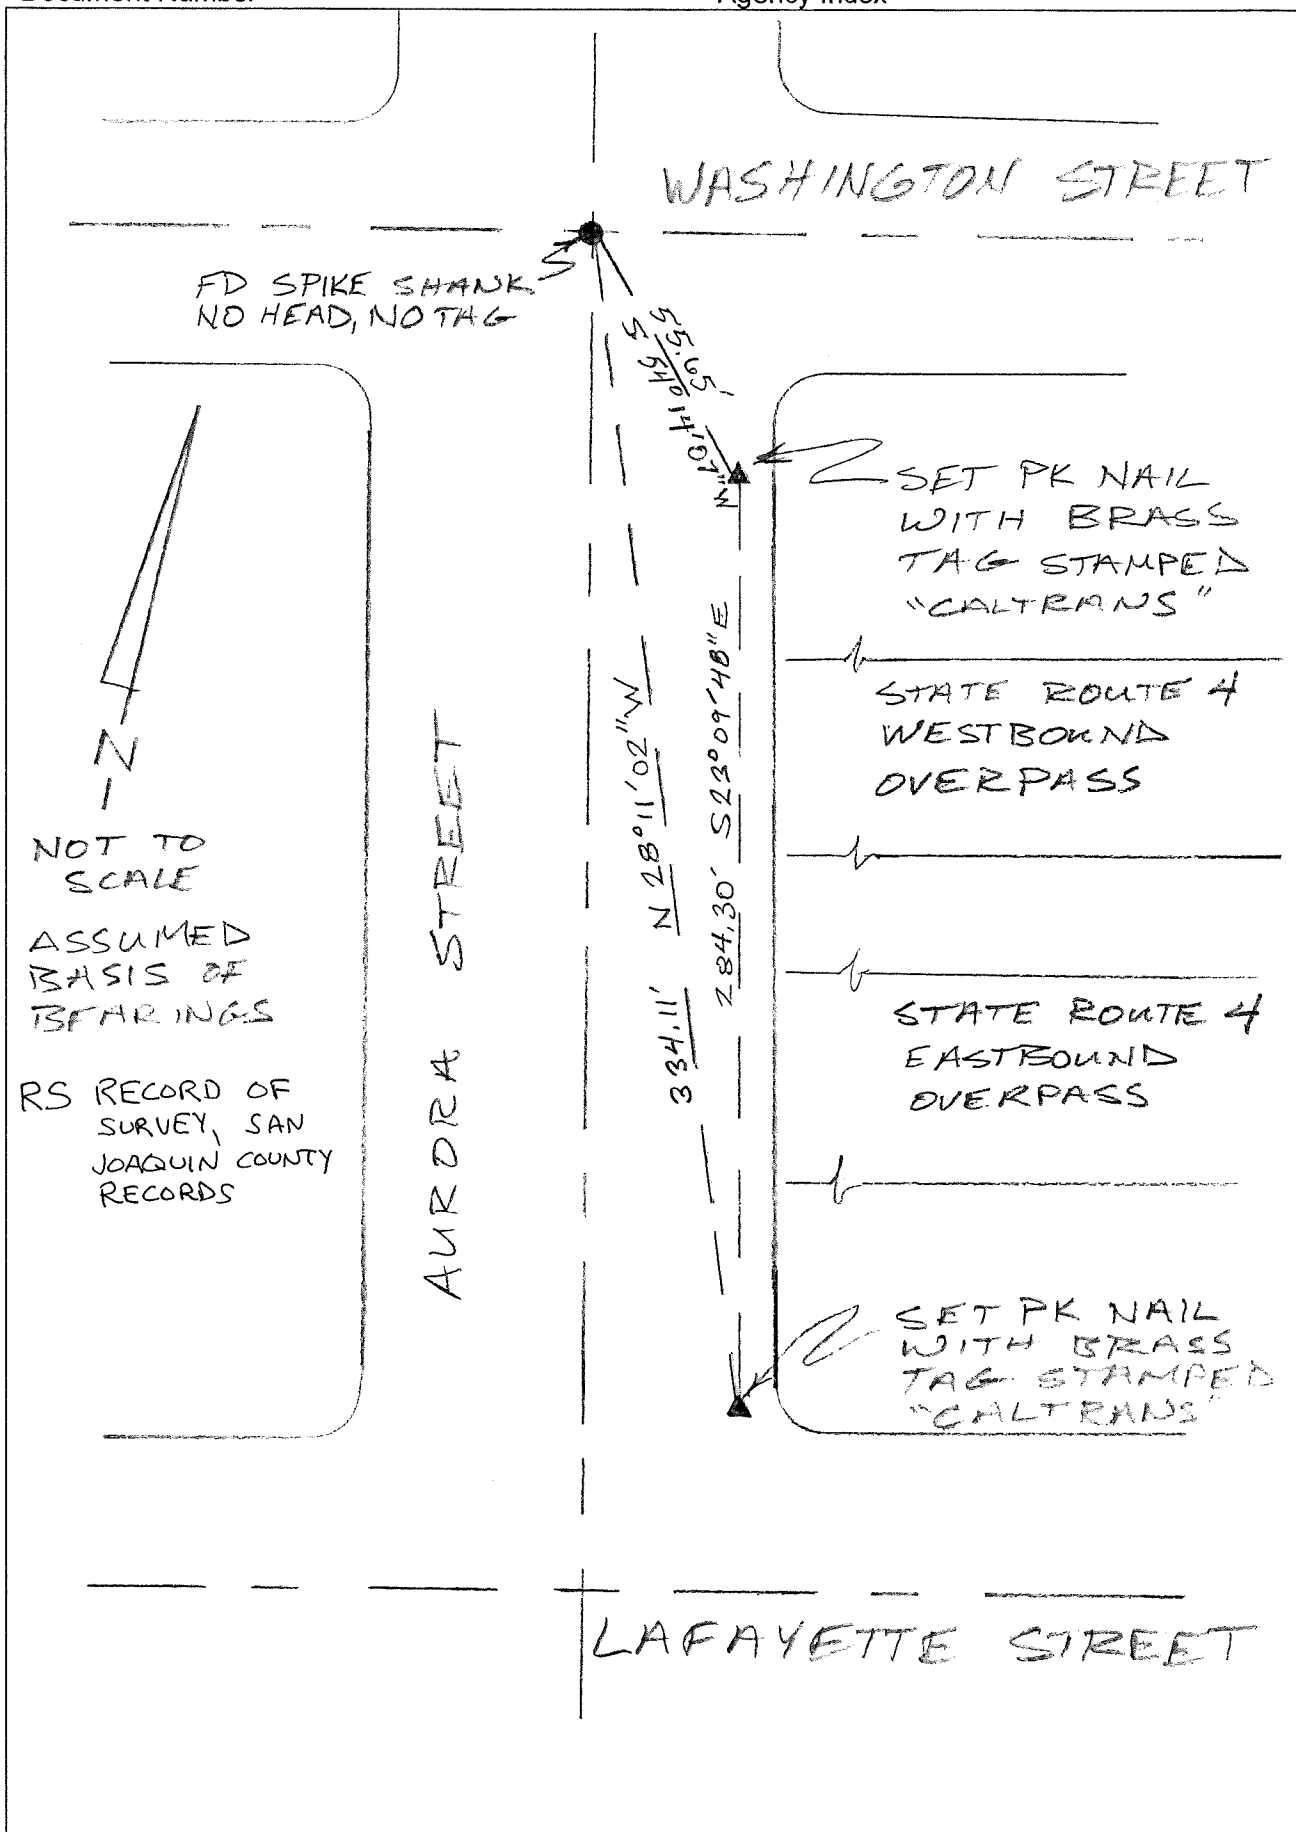 Document Number Agency Index
WASHINGTON STREET
FD SPIKE SHANK
NO HEAD, NO TAG
55.65'
S 54°14'07"W
SET PK NAIL
WITH BRASS
TAG STAMPED
"CALTRANS"
STATE ROUTE 4
WESTBOUND
OVERPASS
N
NOT TO
SCALE
ASSUMED
BASIS OF
BEARINGS
RS RECORD OF
SURVEY, SAN
JOAQUIN COUNTY
RECORDS
AURORA STREET
334.11' N 28°11'02"W
284.30' S23°09'48"E
STATE ROUTE 4
EASTBOUND
OVERPASS
SET PK NAIL
WITH BRASS
TAG STAMPED
"CALTRANS"
LAFAYETTE STREET